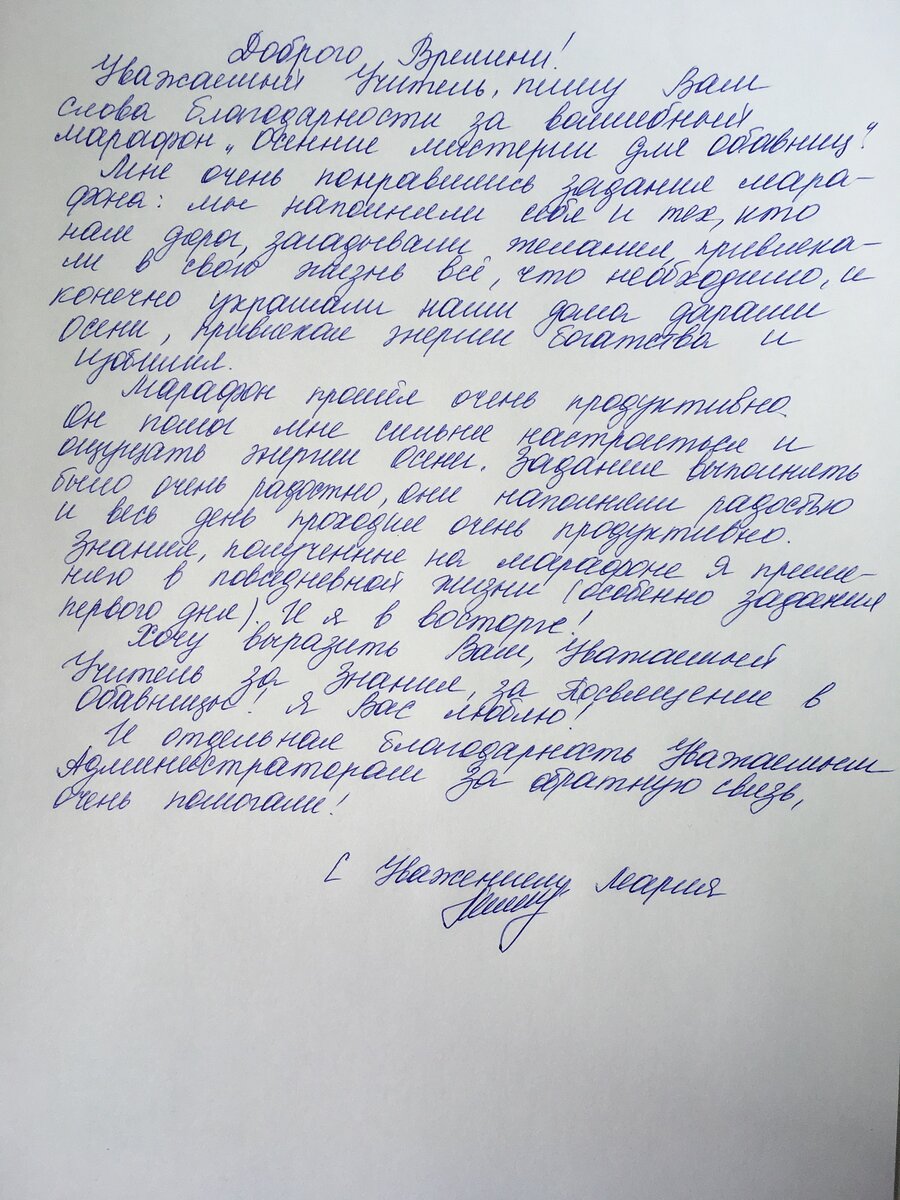 Доброго Времени!
Уважаемый Учитель, пишу Вам
слова благодарности за волшебный
марафон „Осенние мистерии для обавниц".
Мне очень понравились задания мара-
фона: мы наполняли себя и тех, кто
нам дорог, загадывали желания, привлека-
ли в свою жизнь всё, что необходимо, и
конечно украшали наши дома дарами
Осени, привлекая энергии Богатства и
изобилия.
Марафон прошёл очень продуктивно.
Он помог мне сильнее настроиться и
ощущать энергии Осени. Задания выполнять
было очень радостно, они наполняли радостью
и весь день проходил очень продуктивно.
Знания, полученные на марафоне Я приме-
няю в повседневной жизни (особенно задания
первого дня). И я в восторге!
Хочу выразить Вам, Уважаемый
Учитель за Знания, за Посвящение в
Обавницы! Я Вас люблю!
И отдельная благодарность Уважаемым
Администраторам за обратную связь,
очень помогали!
С Уважением, Мария